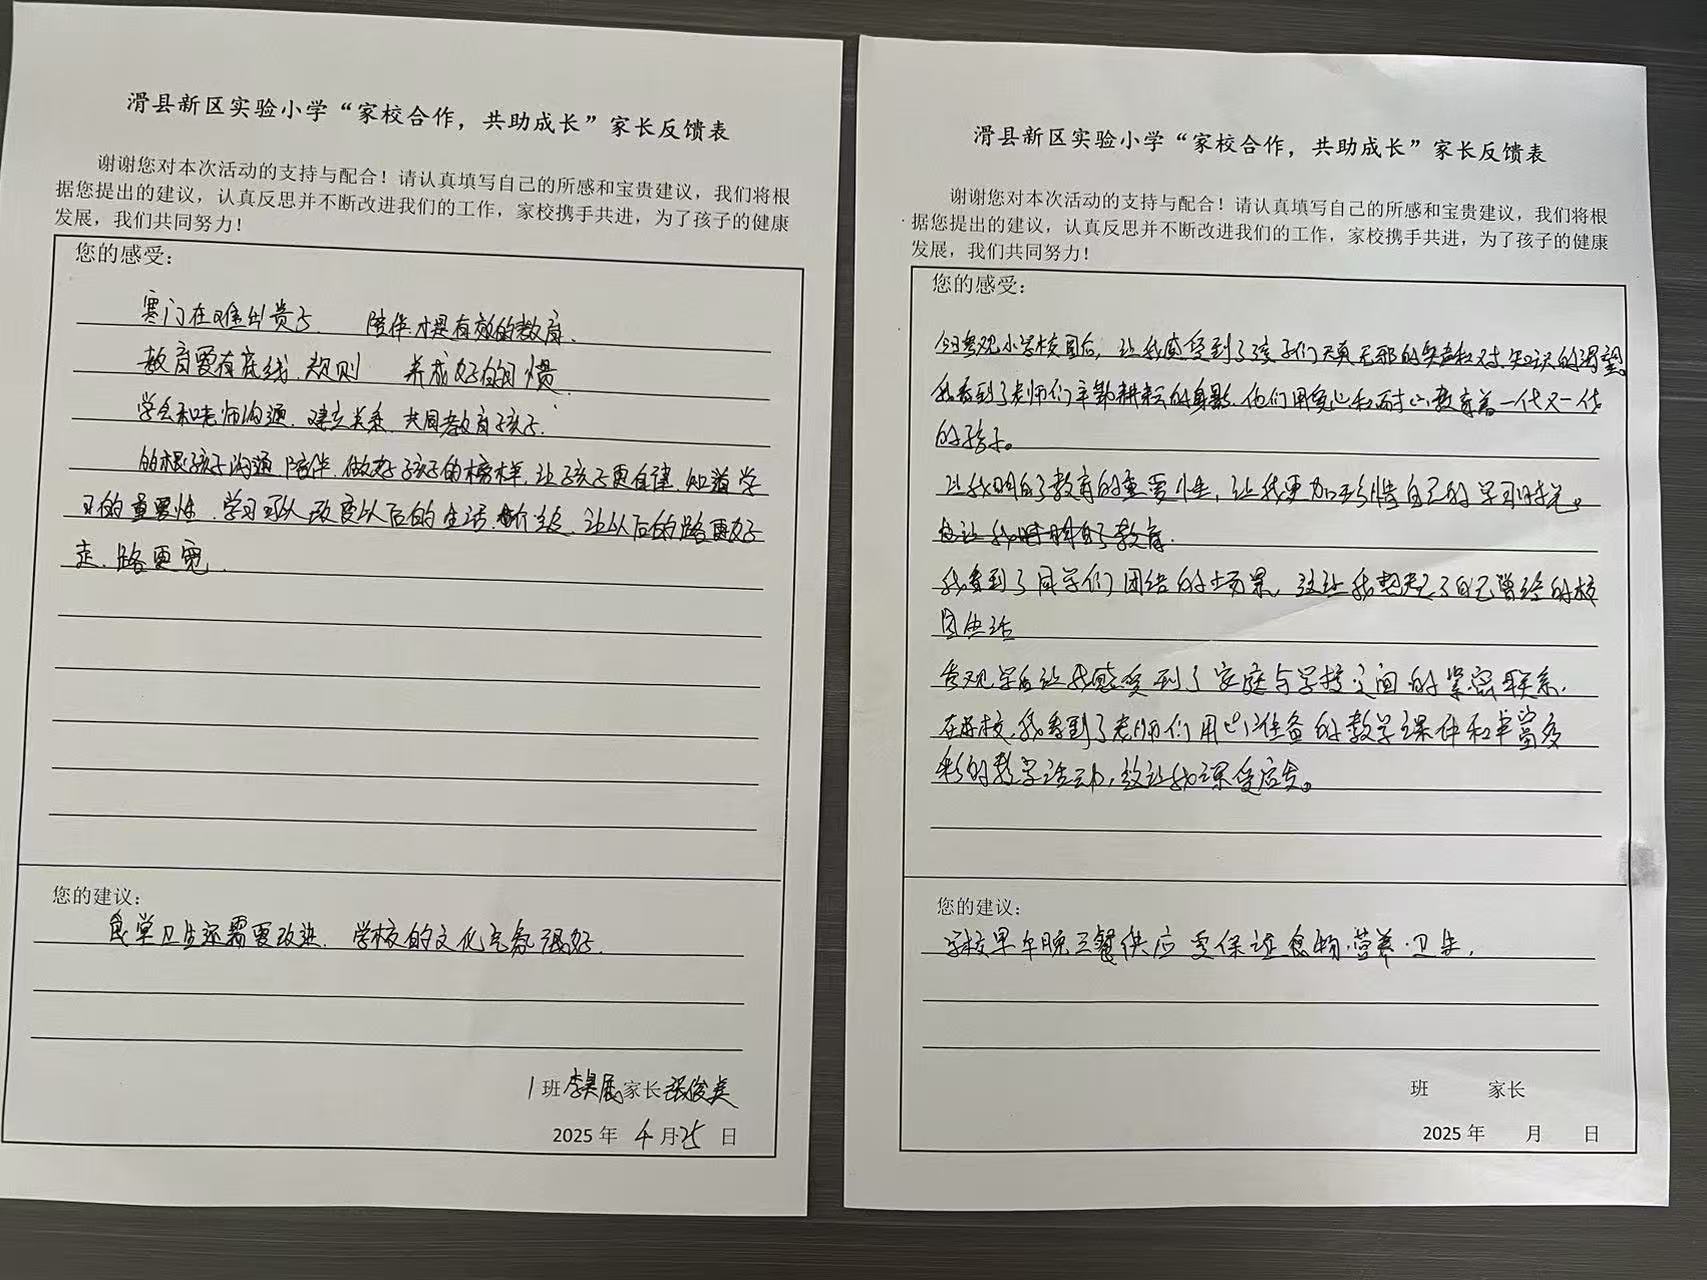 滑县新区实验小学“家校合作，共助成长”家长反馈表
谢谢您对本次活动的支持与配合！请认真填写自己的所感和宝贵建议，我们将根
据您提出的建议，认真反思并不断改进我们的工作，家校携手共进，为了孩子的健康
发展，我们共同努力！
您的感受：
寒门在难出贵子. 陪伴才是有效的教育.
教育要有底线.规则 养成好的习惯.
学会和老师沟通.建立关系.共同教育孩子.
的根孩子沟通陪伴.做好孩子的榜样.让孩子更自律.知道学
习的重要性.学习可以改变以后的生活.让以后的路更好
走.路更宽.
您的建议：
食堂卫生还需要改进. 学校的文化气氛很好.
1班 家长 张俊英
2025年 4月25日
滑县新区实验小学“家校合作，共助成长”家长反馈表
谢谢您对本次活动的支持与配合！请认真填写自己的所感和宝贵建议，我们将根
据您提出的建议，认真反思并不断改进我们的工作，家校携手共进，为了孩子的健康
发展，我们共同努力！
您的感受：
今日参观小学校园后，让我感受到了孩子们天真无邪的笑声和对知识的渴望。
我看到了老师们辛勤耕耘的身影.他们用爱心和耐心教育着一代又一代
的孩子。
让我明白了教育的重要性，让我更加珍惜自己的学习时光。
也让我明白了教育.
我看到了同学们团结的场景，这让我想起了自己曾经的校
园生活
参观学后让我感受到了家庭与学校之间的紧密联系.
在学校，我看到了老师们用心准备的教学课件和丰富多
彩的教学活动，这让我深受启发。
您的建议：
学校早午晚三餐供应要保证食物.营养.卫生.
班 家长
2025年 月 日